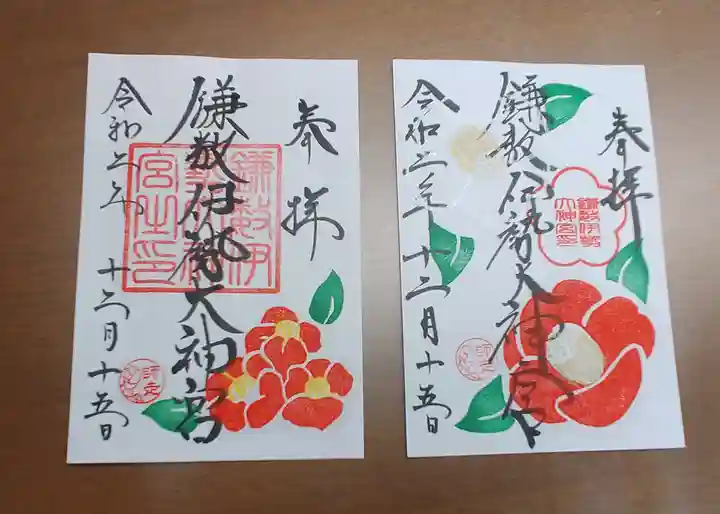 奉拝
鎌数伊勢大神宮
令和二年
十二月十五日
奉拝
鎌数伊勢大神宮
鎌数伊勢
大神宮印
令和二年十二月十五日